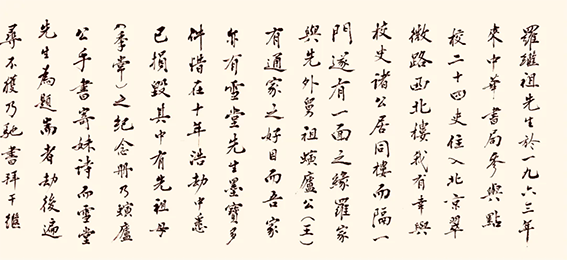 羅繼祖先生於一九六三年
來中華書局參與點
校二十四史住入北京翠
微路西北樓我有幸與
校史諸公居同樓而隔一
門遂有一面之緣羅家
與先外舅祖螾廬公（王）
有通家之好因而吾家
亦有雪堂先生墨寶多
件惜在十年浩劫中悉
已損毀其中有先祖母
（季常）之紀念冊乃螾廬
公手書寄妹詩而雪堂
先生為題耑者劫後遍
尋不獲乃馳書拜干繼